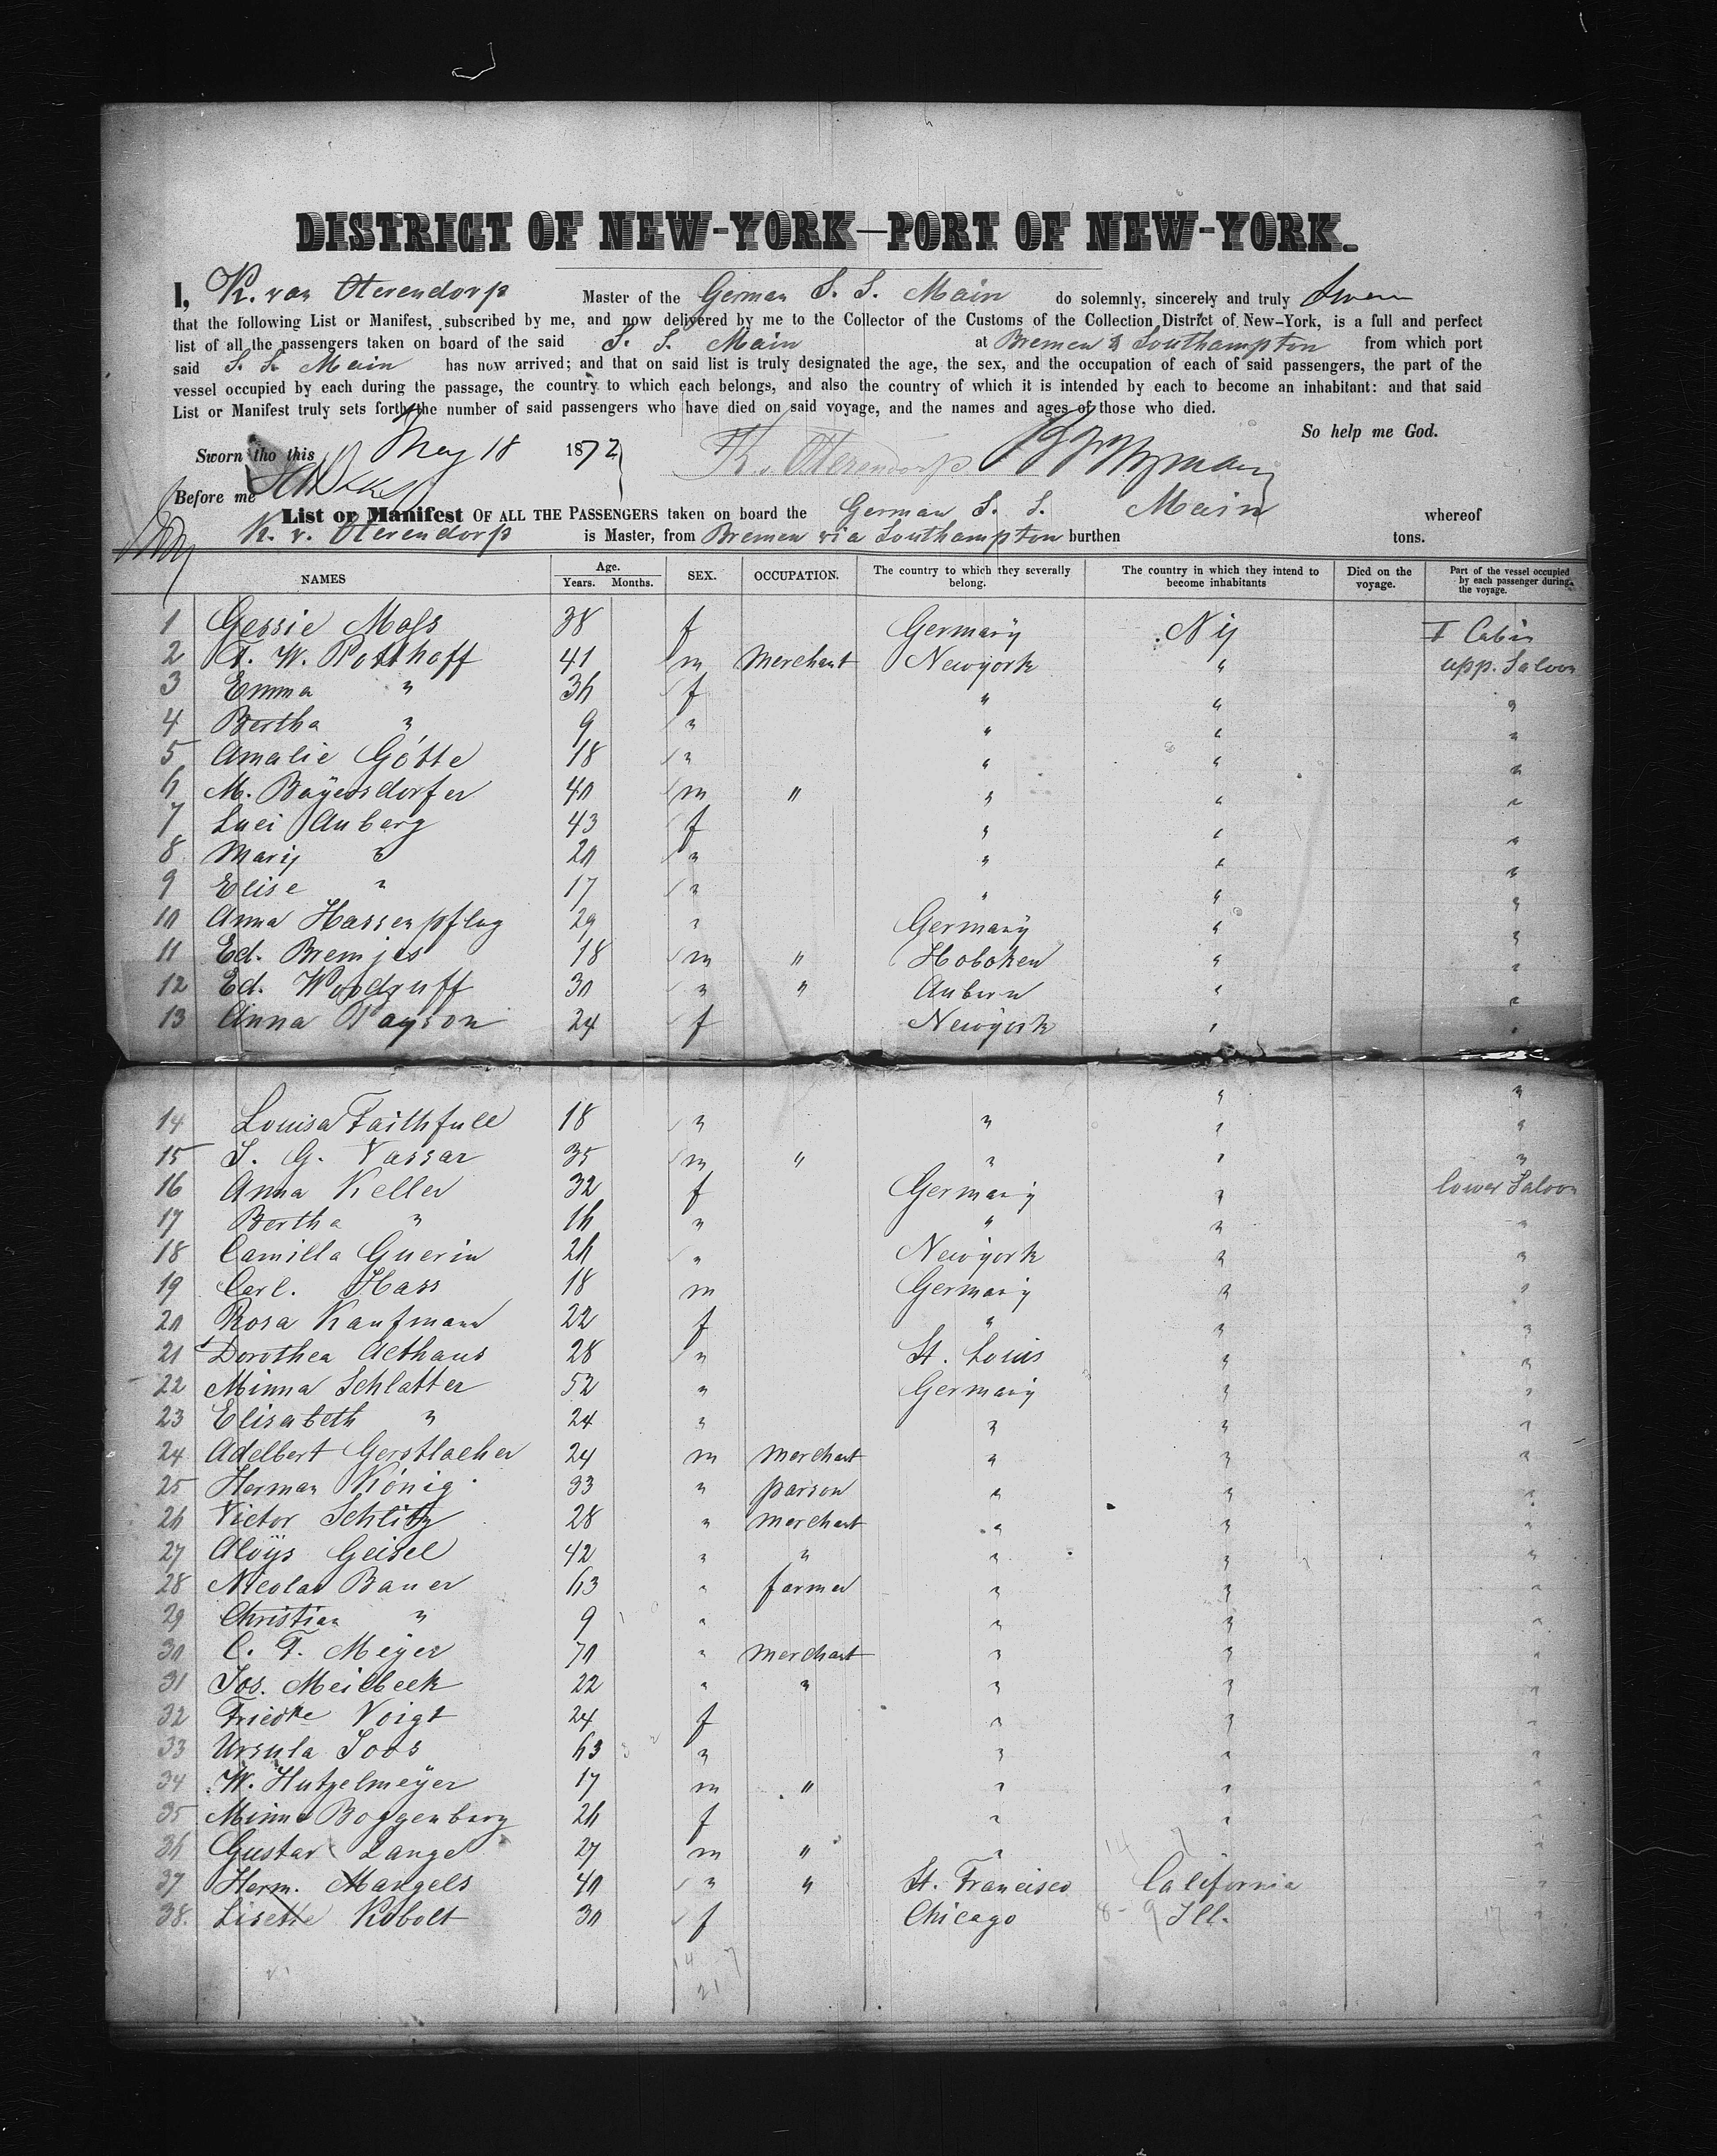 DISTRICT OF NEW-YORK—PORT OF NEW-YORK.
I, K. von Oterendorp Master of the German S. S. Main do solemnly, sincerely and truly Swear
that the following List or Manifest, subscribed by me, and now delivered by me to the Collector of the Customs of the Collection District of New-York, is a full and perfect
list of all the passengers taken on board of the said S. S. Main at Bremen & Southampton from which port
said S. S. Main has now arrived; and that on said list is truly designated the age, the sex, and the occupation of each of said passengers, the part of the
vessel occupied by each during the passage, the country to which each belongs, and also the country of which it is intended by each to become an inhabitant: and that said
List or Manifest truly sets forth the number of said passengers who have died on said voyage, and the names and ages of those who died.
So help me God.
Sworn tho this May 18 1872 K. v. Oterendorp
Before me
List or Manifest OF ALL THE PASSENGERS taken on board the German S. S. Main whereof
K. v. Oterendorp is Master, from Bremen via Southampton burthen tons.
NAMES Age. Years. Months. SEX. OCCUPATION. The country to which they severally belong. The country in which they intend to become inhabitants Died on the voyage. Part of the vessel occupied by each passenger during the voyage.
1 Gessie Mass 38 f Germany Ny I Cabin
2 F. W. Potthoff 41 m merchant Newyork " upp. Saloon
3 Emma " 36 f " " "
4 Bertha " 9 " " " "
5 Amalie Götte 18 " " " "
6 M. Bayersdorfer 40 m " " " "
7 Luci Auberg 43 f " " "
8 Mariy " 20 " " " "
9 Elise " 17 " " " "
10 Anna Hassenpflug 29 " Germany " "
11 Ed. Bremjes 18 m " Hoboken " "
12 Ed. Woodruff 30 " " Auburn " "
13 Anna Payson 24 f Newyork " "
14 Louisa Faithfull 18 " " " "
15 J. G. Vassar 35 m " " " "
16 Anna Keller 32 f Germany " lower Saloon
17 Bertha " 16 " " " "
18 Camilla Guerin 26 " Newyork " "
19 Carl. Hass 18 m Germany " "
20 Rosa Kaufmann 22 f " " "
21 Dorothea Althaus 28 " St. Louis " "
22 Minna Schlatter 52 " Germany " "
23 Elisabeth " 24 " " " "
24 Adelbert Gerstlacher 24 m merchant " " "
25 Herman König 33 " parson " " "
26 Victor Schlitz 28 " merchant " " "
27 Aloÿs Geisel 42 " " " " "
28 Nicolas Bauer 63 " farmer " " "
29 Christian " 9 " " " "
30 C. F. Meyer 70 " merchant " " "
31 Jos. Meilbeck 22 " " " " "
32 Friedke Voigt 24 f " " "
33 Ursula Joos 63 " " " "
34 W. Hutzelmeÿer 17 m " " " "
35 Minna Boggenberg 26 f " " "
36 Gustav Lange 27 m " " "
37 Herm. Mangels 40 " " St. Francisco California "
38. Lisette Kobolt 30 f Chicago Ill. "